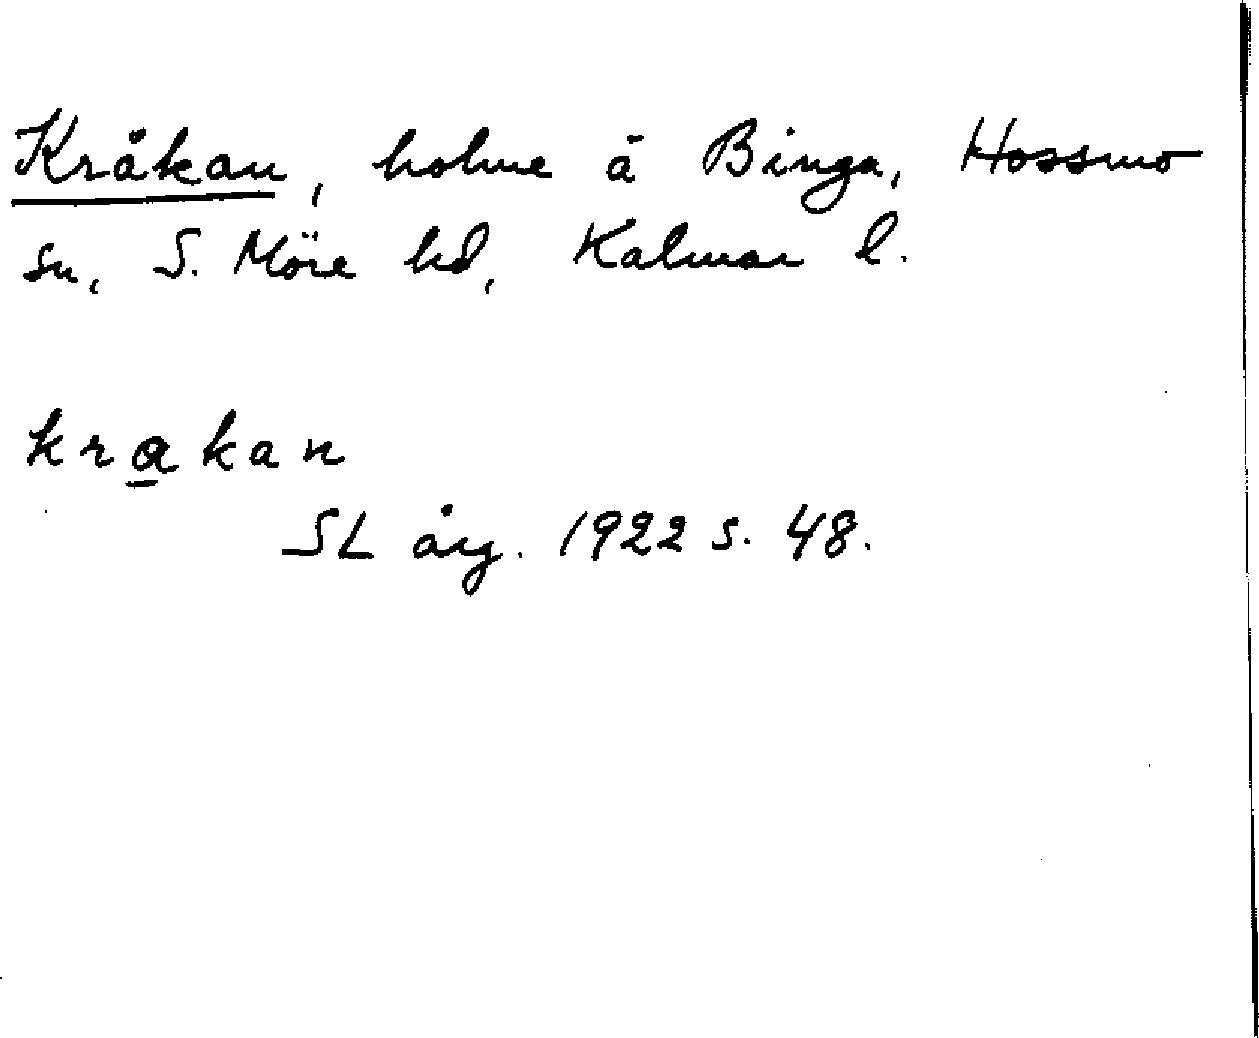 Kråkan, holme å Binga, Hossmo
sn, S. Möre hd, Kalmar l.
kråkan
SL årg. 1922 s. 48.